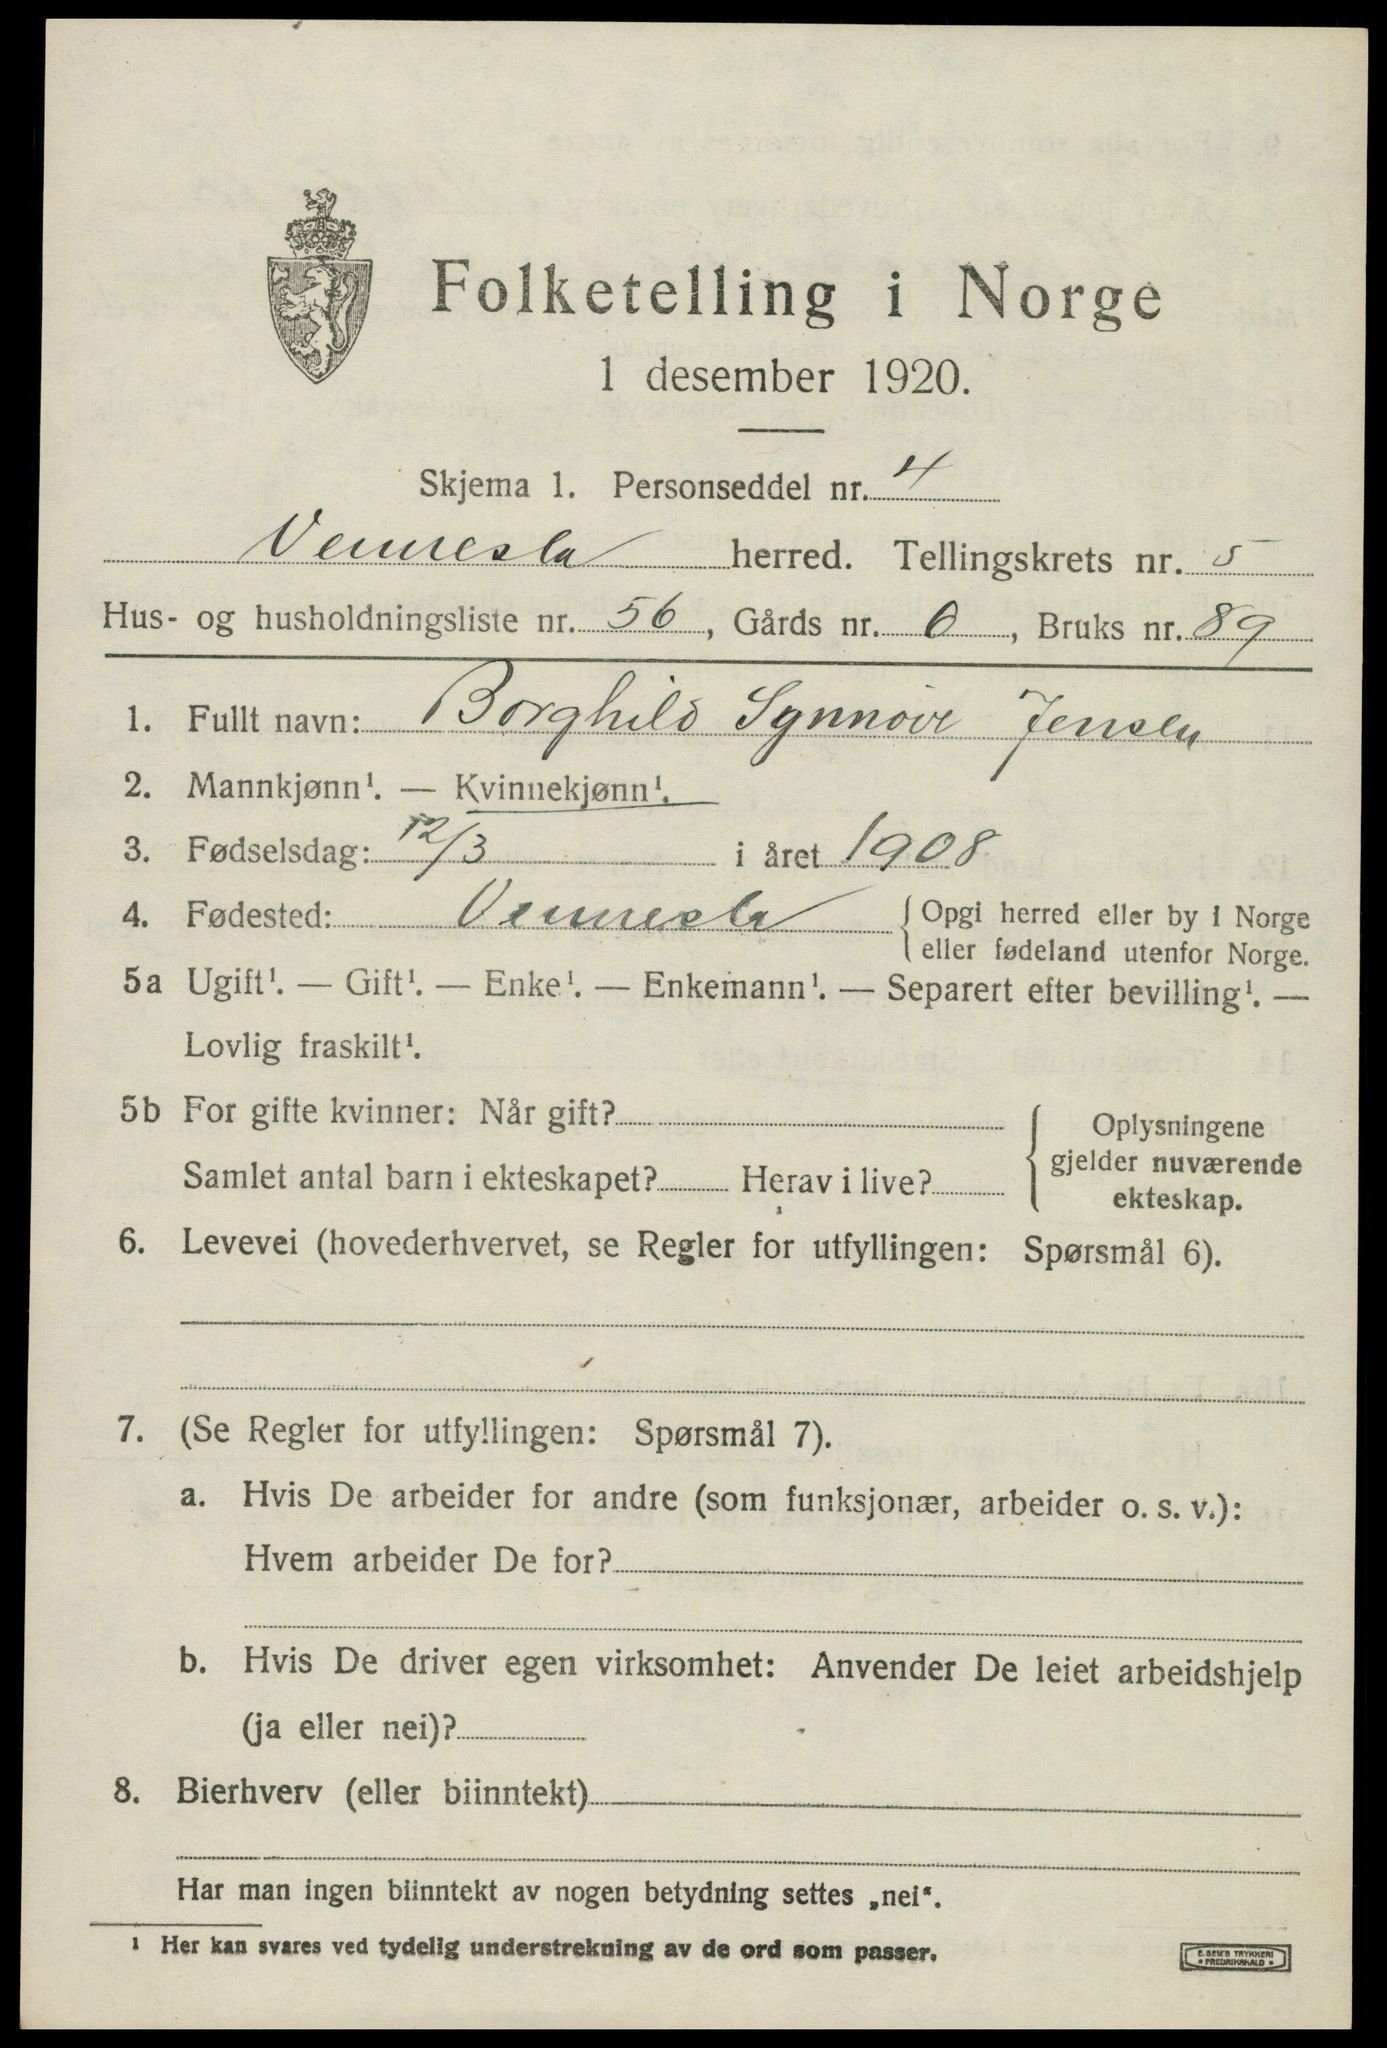 Folketelling i Norge
1 desember 1920.
Skjema 1. Personseddel nr. 4
Vennesla herred. Tellingskrets nr. 5
Hus- og husholdningsliste nr. 56, Gårds nr. 0, Bruks nr. 89
1. Fullt navn: Borghild Synnöve Jensen
2. Mannkjønn¹. — Kvinnekjønn¹.
3. Fødselsdag: 12/3 i året 1908
4. Fødested: Vennesla { Opgi herred eller by i Norge
eller fødeland utenfor Norge.
5a Ugift¹. — Gift¹. — Enke¹. — Enkemann¹. — Separert efter bevilling¹. —
Lovlig fraskilt¹.
5b For gifte kvinner: Når gift?
Samlet antal barn i ekteskapet? Herav i live?
Oplysningene
gjelder nuværende
ekteskap.
6. Levevei (hovederhvervet, se Regler for utfyllingen: Spørsmål 6).
7. (Se Regler for utfyllingen: Spørsmål 7).
a. Hvis De arbeider for andre (som funksjonær, arbeider o. s. v.):
Hvem arbeider De for?
b. Hvis De driver egen virksomhet: Anvender De leiet arbeidshjelp
(ja eller nei)?
8. Bierhverv (eller biinntekt)
Har man ingen biinntekt av nogen betydning settes „nei“.
¹ Her kan svares ved tydelig understrekning av de ord som passer.
E. SEM'S TRYKKERI
FREDRIKSHALD